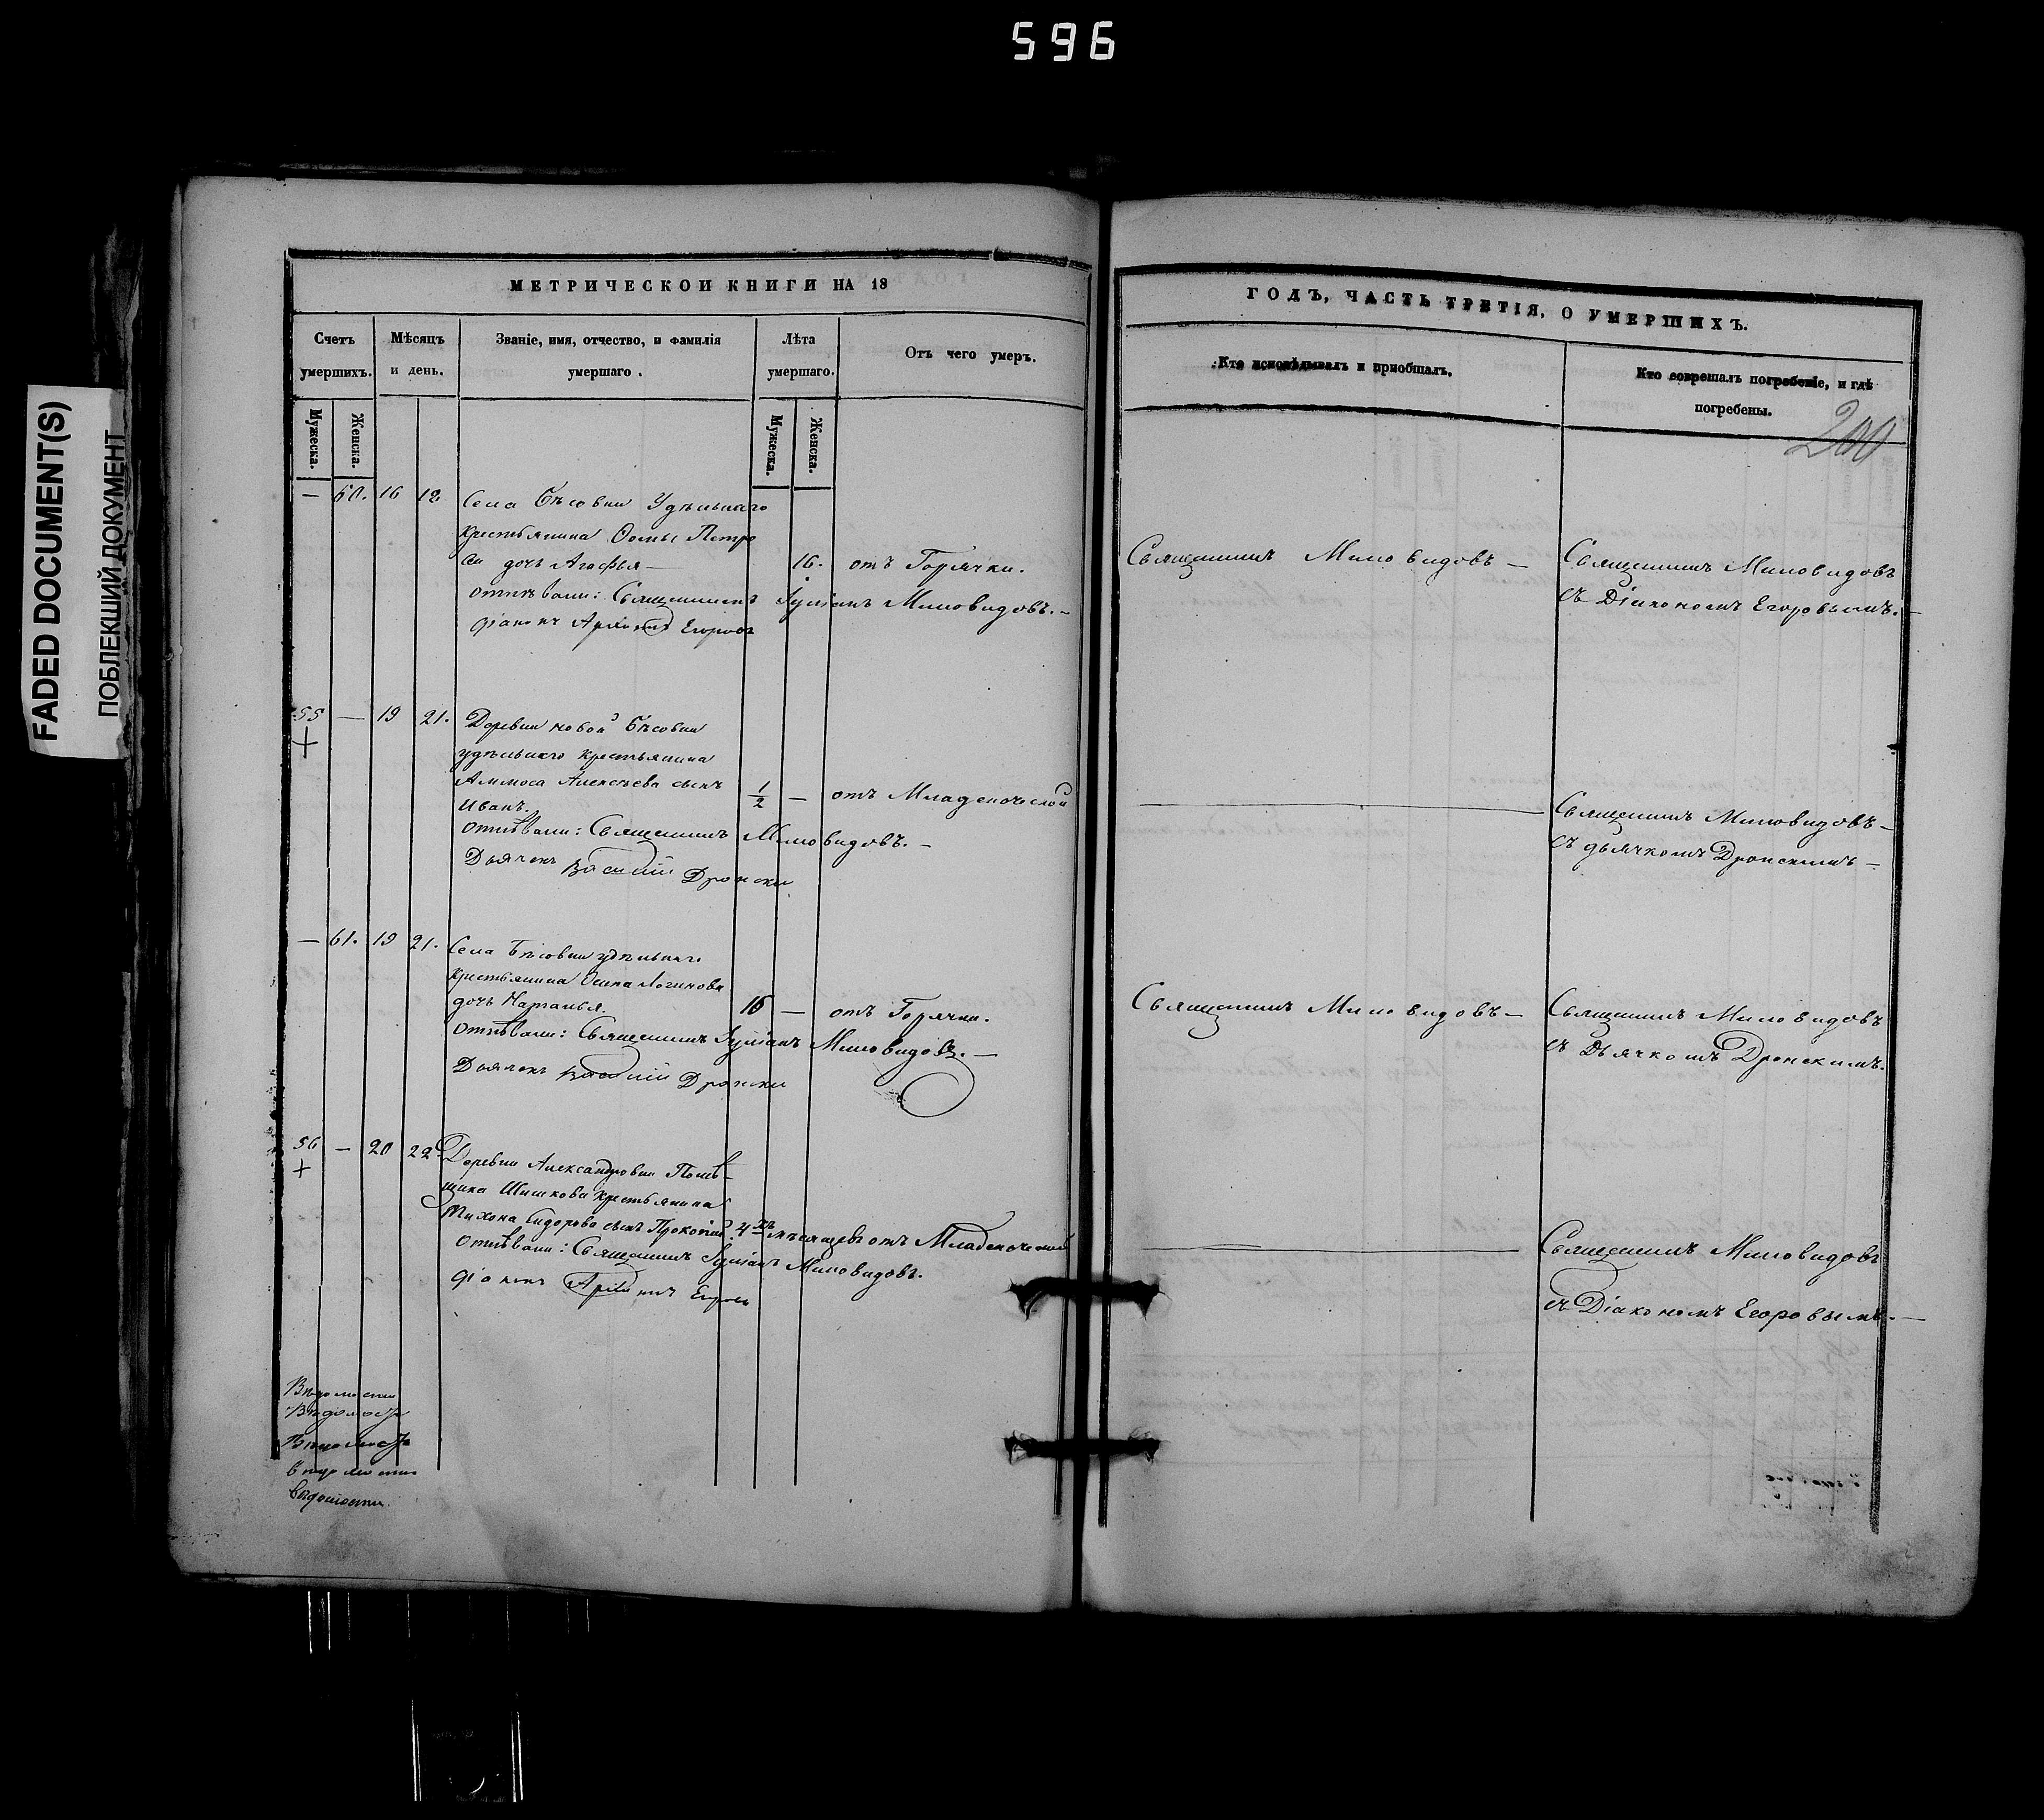 596
FADED DOCUMENT(S)
ПОБЛЕКШИЙ ДОКУМЕНТ
МЕТРИЧЕСКОИ КНИГИ НА 18
Счетъ умершихъ.
Мѣсяцъ и день.
Званіе, имя, отчество, и фамилія умершаго.
Лѣта умершаго.
Отъ чего умеръ.
Мужеска.
Женска.
Мужеска.
Женска.
— 60. 16 18
Села Бѣсовки Удѣльнаго
крестьянина Ѳомы Петро
дочь Агафья —
16. отъ Горячки.
отпѣвали: Священникъ Іуліанъ Миловидовъ. —
діаконъ Егоровъ
55 — 19 21.
Деревни новой Бѣсовки
удѣльнаго крестьянина
Аммоса Алексѣева сынъ
Иванъ.
1/2 — отъ Младенческой
отпѣвали: Священникъ Миловидовъ. —
Дьячекъ Василій Дронски
— 61. 19 21.
Села Бѣсовки удѣльнаго
крестьянина Осипа Логинова
дочь Наталья.
16 — отъ Горячки.
отпѣвали: Священникъ Іуліанъ Миловидовъ. —
Дьячекъ Василій Дронски
56 — 20 22
Деревни Александровки Помѣ-
щика Шишкова крестьянина
Тихона Сидорова сынъ Прокопій. 4хъ мѣсяцевъ отъ Младенческой
отпѣвали: Священникъ Іуліанъ Миловидовъ.
діаконъ Егоровъ
вѣдомости
ГОДЪ, ЧАСТЬ ТРЕТІЯ, О УМЕРШИХЪ.
Кто исповѣдывалъ и пріобщалъ.
Кто совершалъ погребеніе, и гдѣ
погребены.
200
Священникъ Миловидовъ —
Священникъ Миловидовъ
съ Діакономъ Егоровымъ. —
Священникъ Миловидовъ —
съ дьячкомъ Дронскимъ —
Священникъ Миловидовъ —
Священникъ Миловидовъ
съ Дьячкомъ Дронскимъ.
Священникъ Миловидовъ
съ Діакономъ Егоровымъ. —